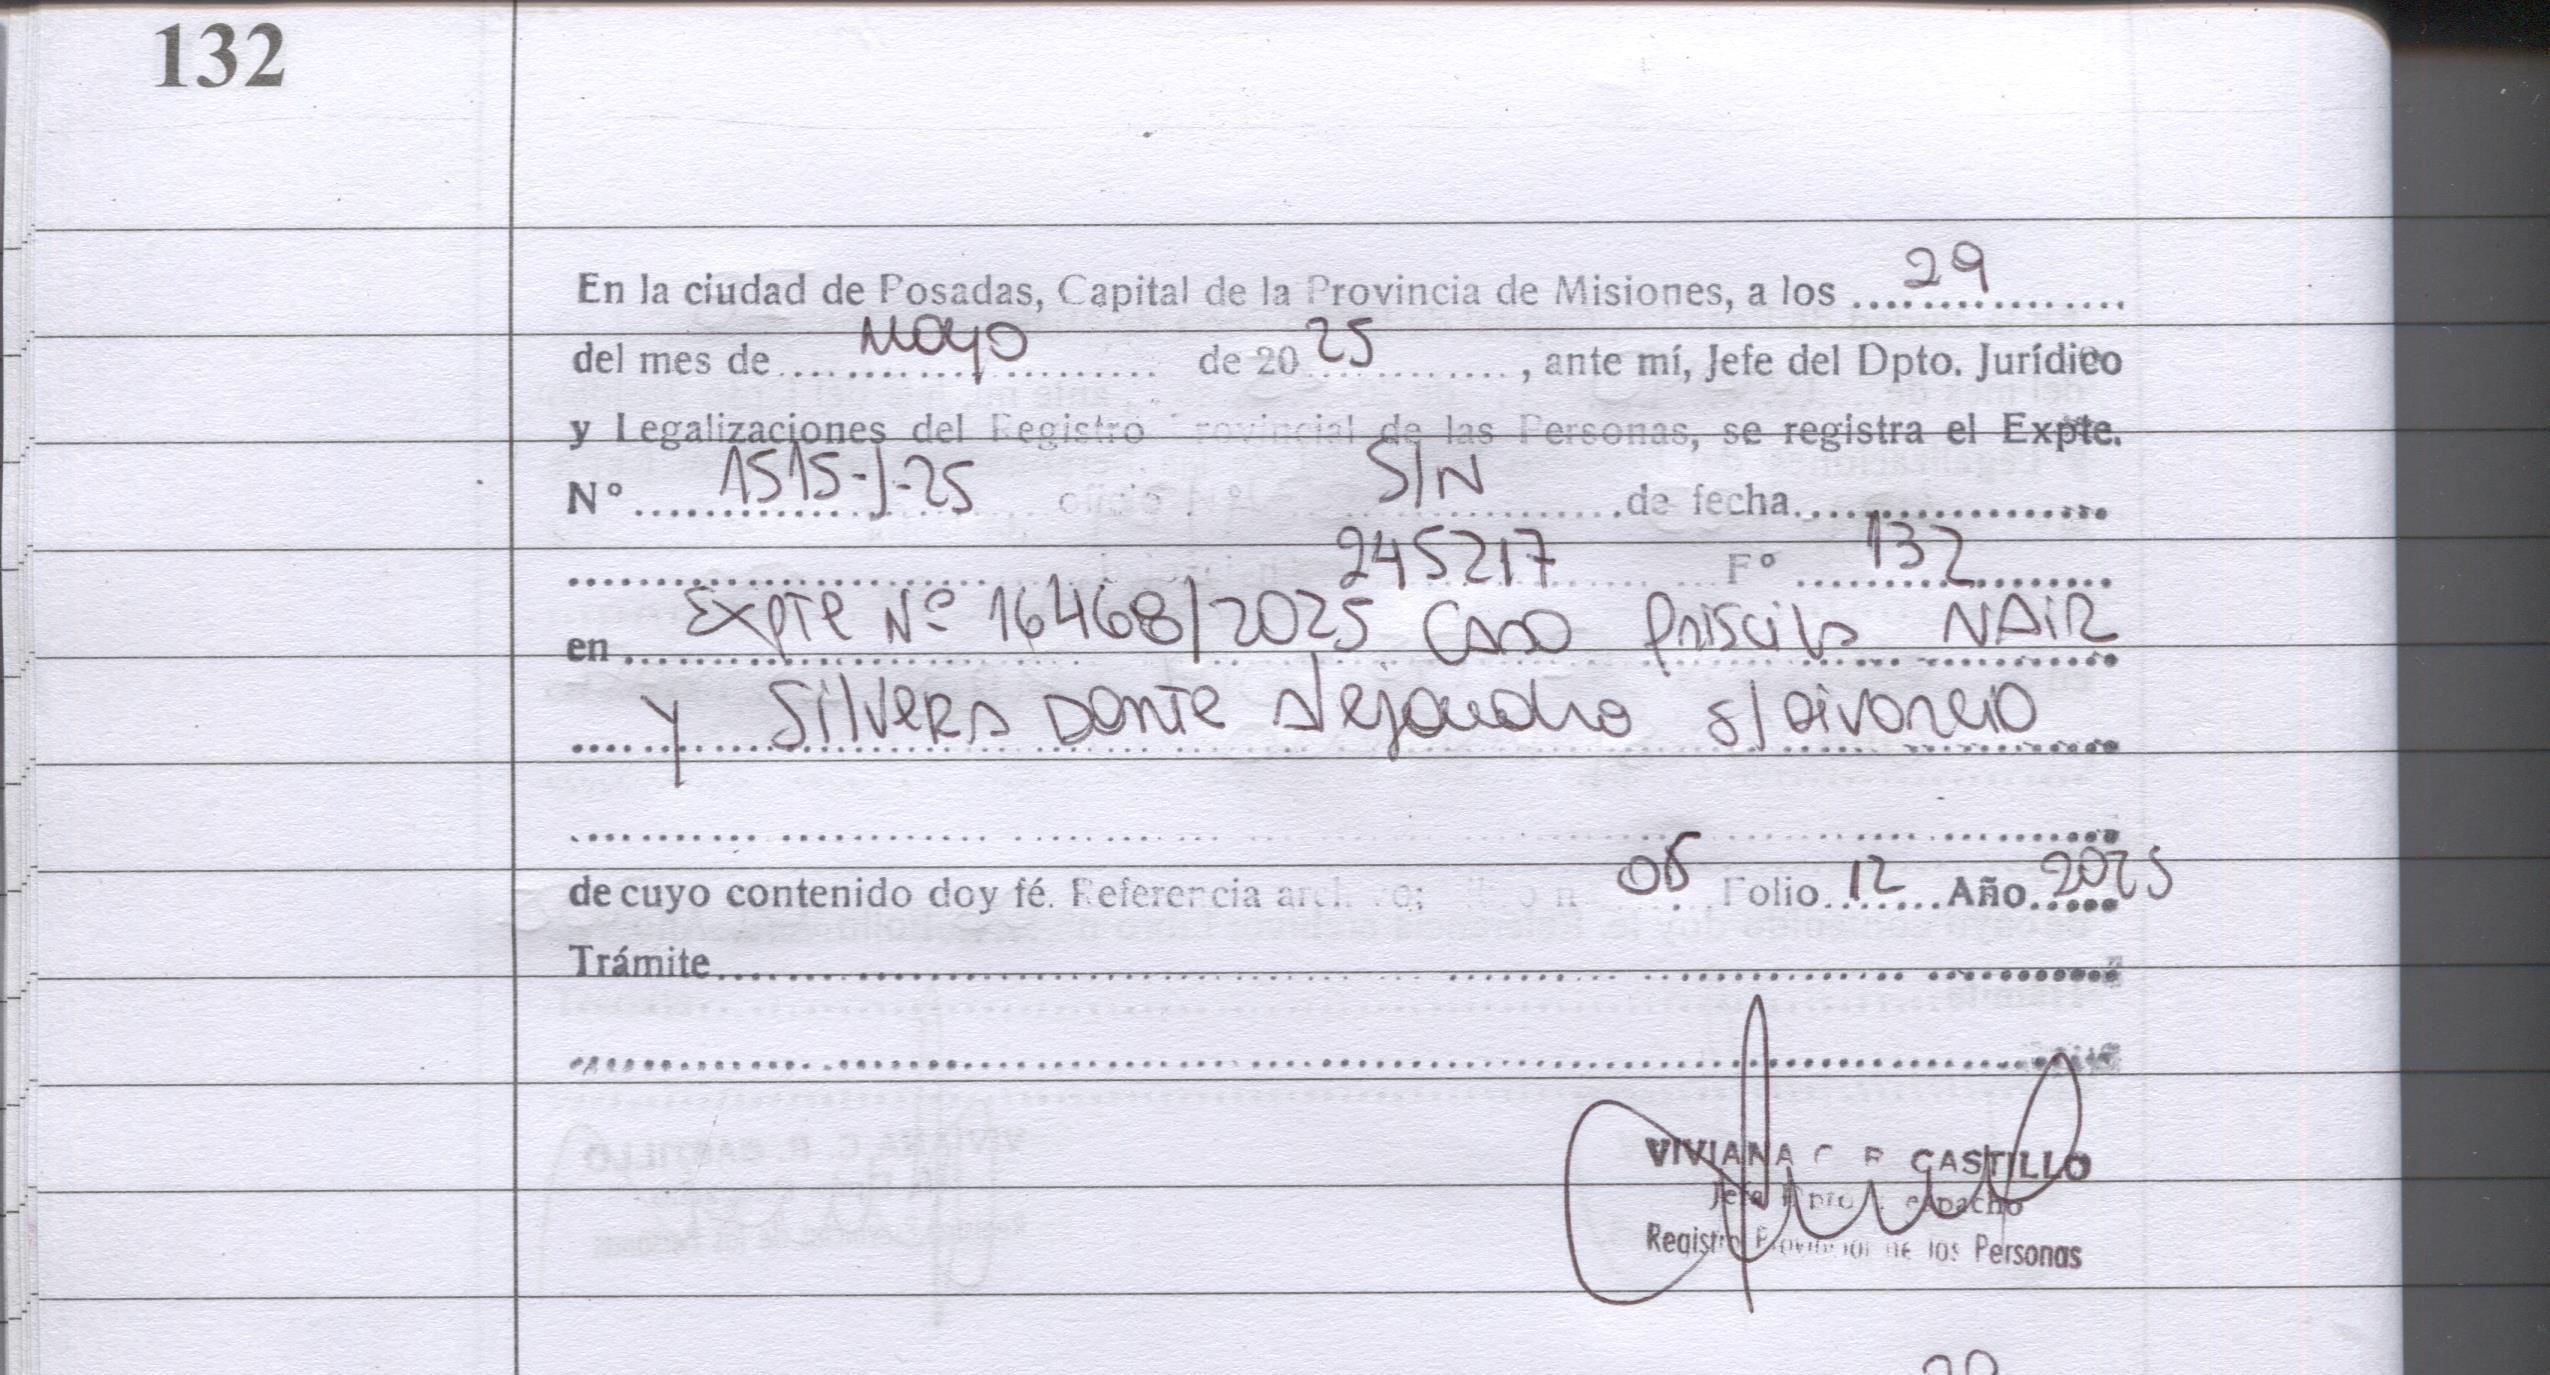 132
En la ciudad de Posadas, Capital de la Provincia de Misiones, a los 29
del mes de Mayo de 20 25, ante mí, Jefe del Dpto. Jurídico
y Legalizaciones del Registro Provincial de las Personas, se registra el Expte.
Nº 1515-J-25 Oficio Nº S/N de fecha
245217 Fº 132
en Expte Nº 16468/2025 Caso Priscila NAIR
y Silvera Dante Alejandro s/Divorcio
de cuyo contenido doy fé. Referencia archivo; libro n 05 Folio 12 Año 2025
Trámite
VIVIANA C. R. CASTILLO
Jefe Dpto. Despacho
Registro Provincial de los Personas